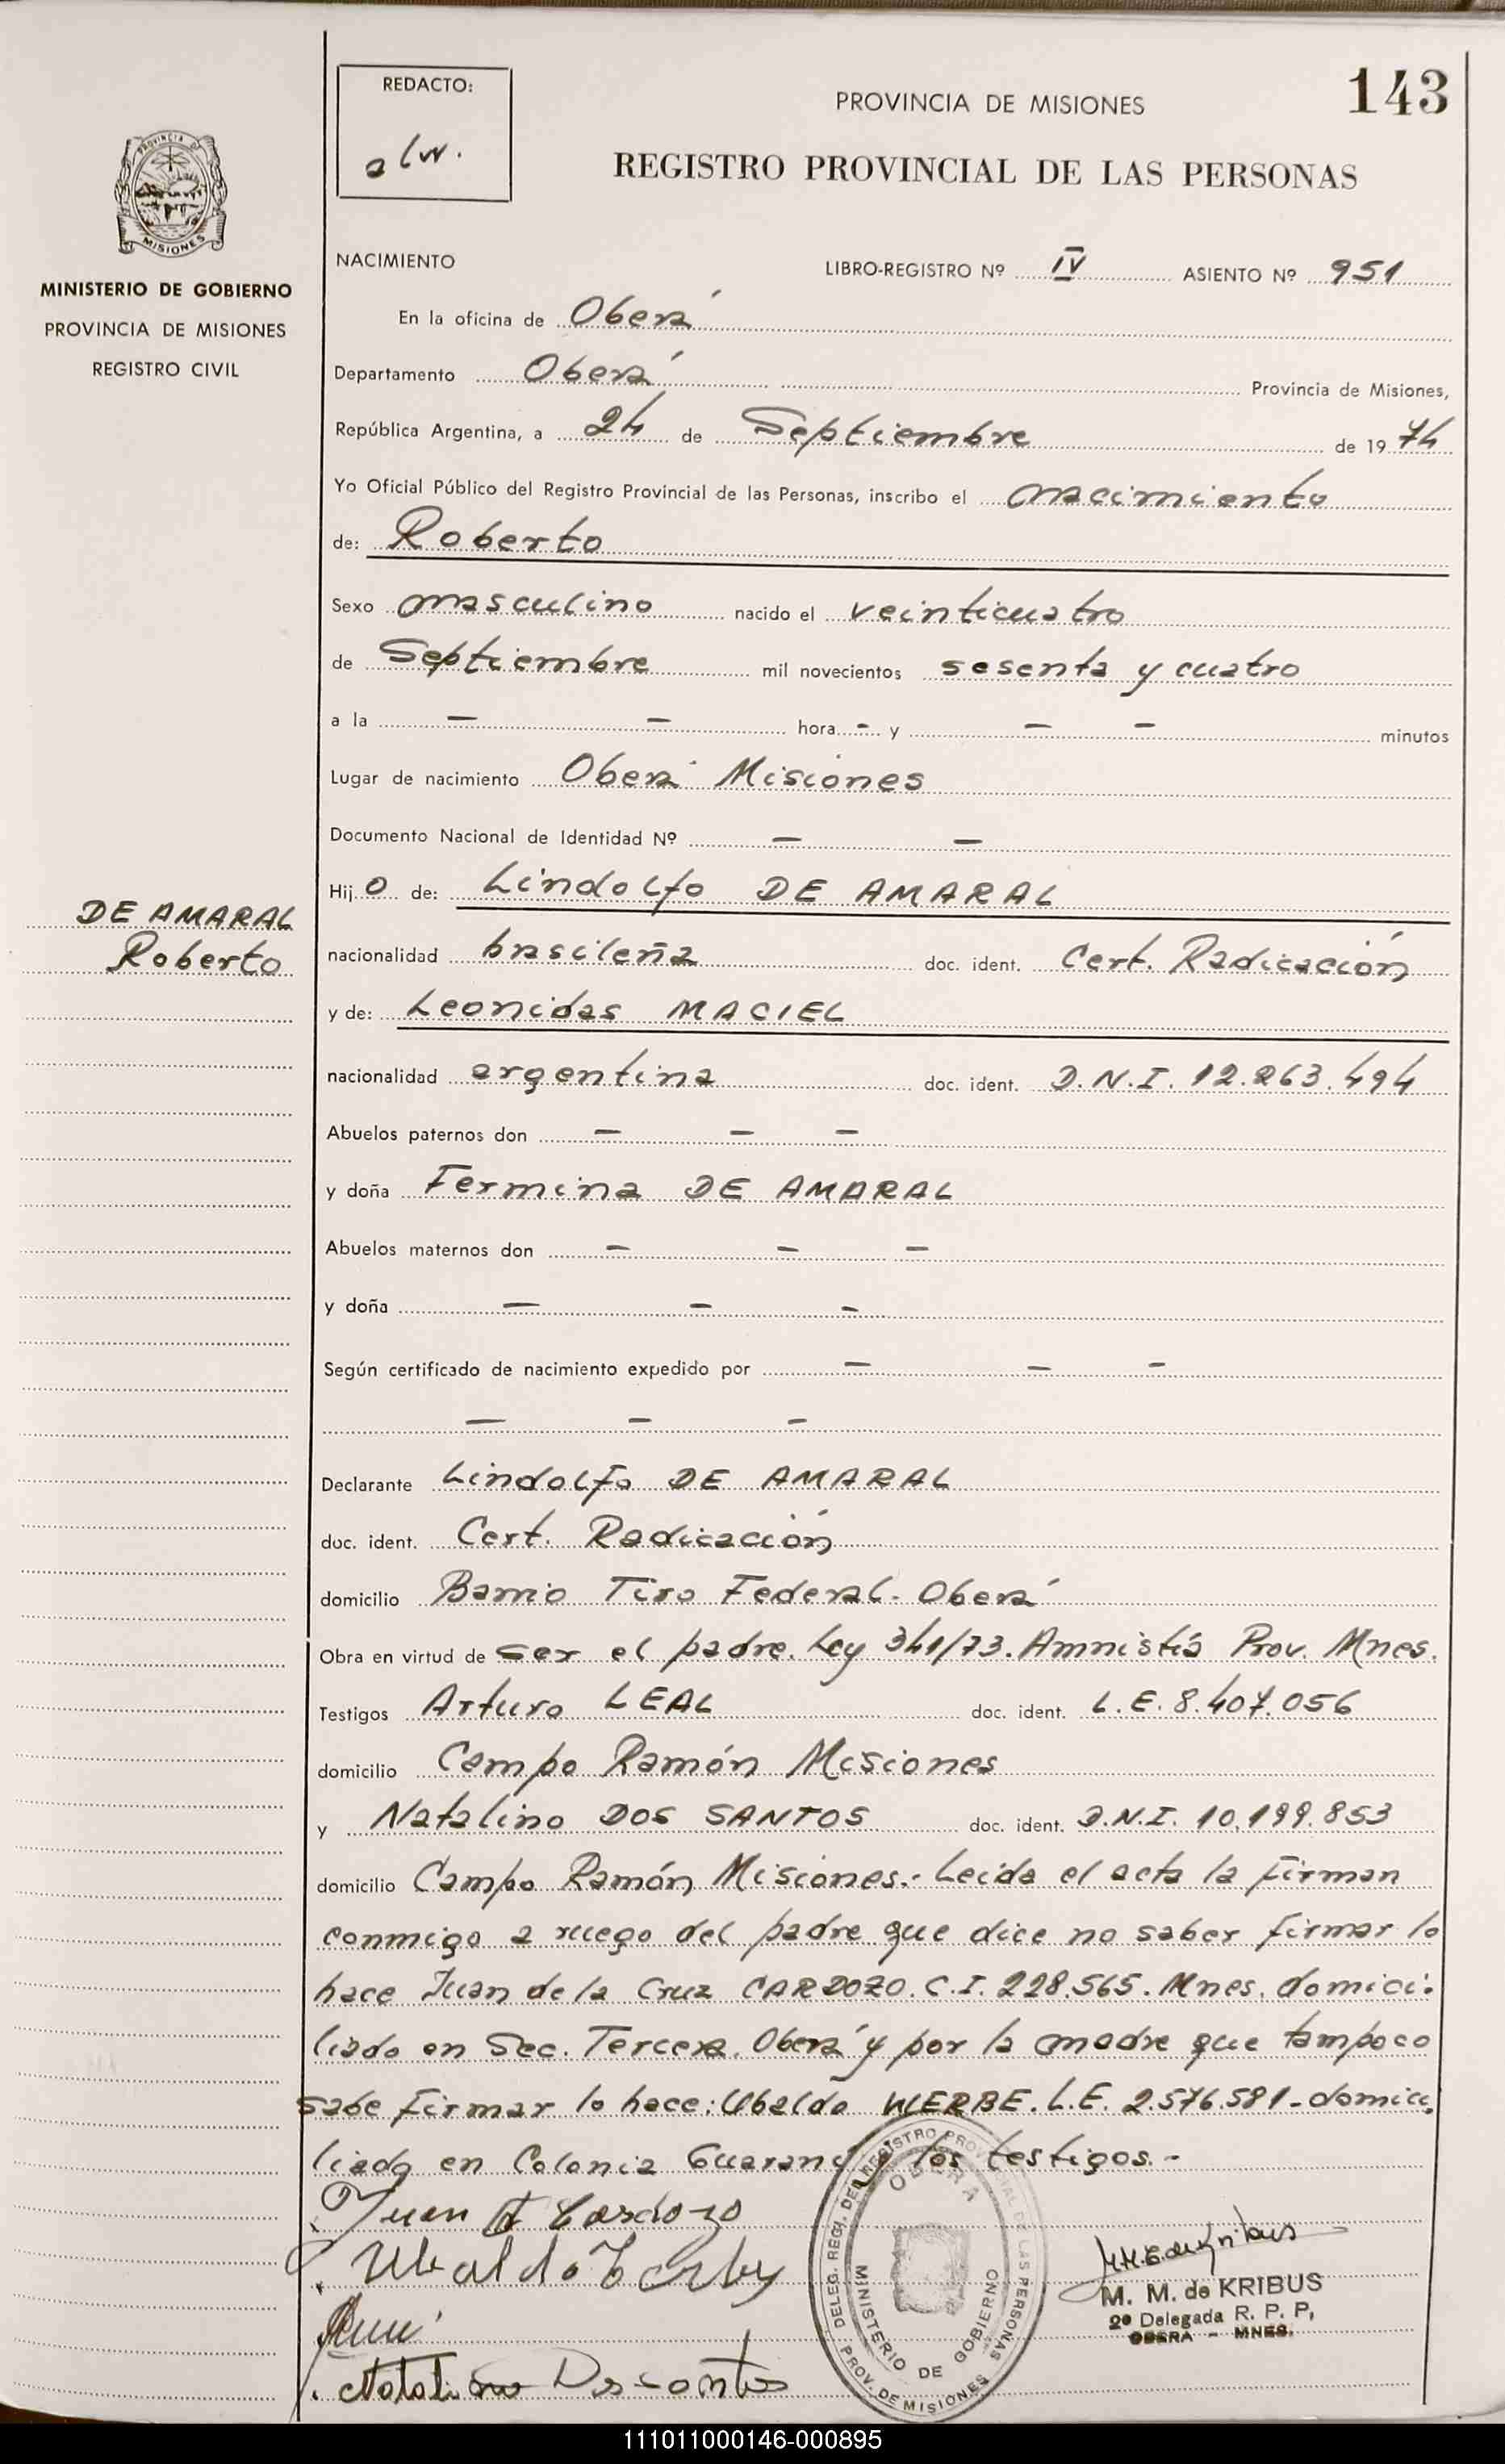 REDACTO:
PROVINCIA DE MISIONES
143
REGISTRO PROVINCIAL DE LAS PERSONAS
PROVINCIA DE
MISIONES
MINISTERIO DE GOBIERNO
PROVINCIA DE MISIONES
REGISTRO CIVIL
NACIMIENTO LIBRO-REGISTRO Nº IV ASIENTO Nº 951
En la oficina de Oberá
Departamento Oberá Provincia de Misiones,
República Argentina, a 24 de Septiembre de 19 74
Yo Oficial Público del Registro Provincial de las Personas, inscribo el nacimiento
de: Roberto
Sexo masculino nacido el veinticuatro
de Septiembre mil novecientos sesenta y cuatro
a la — — hora - y — — minutos
Lugar de nacimiento Oberá Misiones
Documento Nacional de Identidad Nº — —
Hijo de: Lindolfo DE AMARAL
DE AMARAL
Roberto
nacionalidad brasileña doc. ident. Cert. Radicación
y de: Leonidas MACIEL
nacionalidad argentina doc. ident. D.N.I. 12.263.494
Abuelos paternos don — — —
y doña Fermina DE AMARAL
Abuelos maternos don — — —
y doña — — —
Según certificado de nacimiento expedido por — — —
— — —
Declarante Lindolfo DE AMARAL
doc. ident. Cert. Radicación
domicilio Barrio Tiro Federal. Oberá
Obra en virtud de ser el padre. Ley 341/73. Amnistía Prov. Mnes.
Testigos Arturo LEAL doc. ident. L.E. 8.407.056
domicilio Campo Ramón Misiones
y Natalino DOS SANTOS doc. ident. D.N.I. 10.199.853
domicilio Campo Ramón Misiones.- Leida el acta la firman
conmigo a ruego del padre que dice no saber firmar lo
hace Juan de la Cruz CARDOZO. C.I. 228.565. Mnes. domici-
liado en Sec. Tercera. Oberá y por la madre que tampoco
sabe firmar lo hace: Ubaldo WERBE. L.E. 2.576.581 - domici
liado en Colonia Guaraní y los testigos.-
Juan Cardozo
Ubaldo
Natalino
DELEG. REGI. DEL REGISTRO PROVINCIAL DE LAS PERSONAS
OBERA
MINISTERIO DE GOBIERNO
PROV. DE MISIONES
M. M. de KRIBUS
2º Delegada R. P. P.
OBERA - MNES.
111011000146-000895